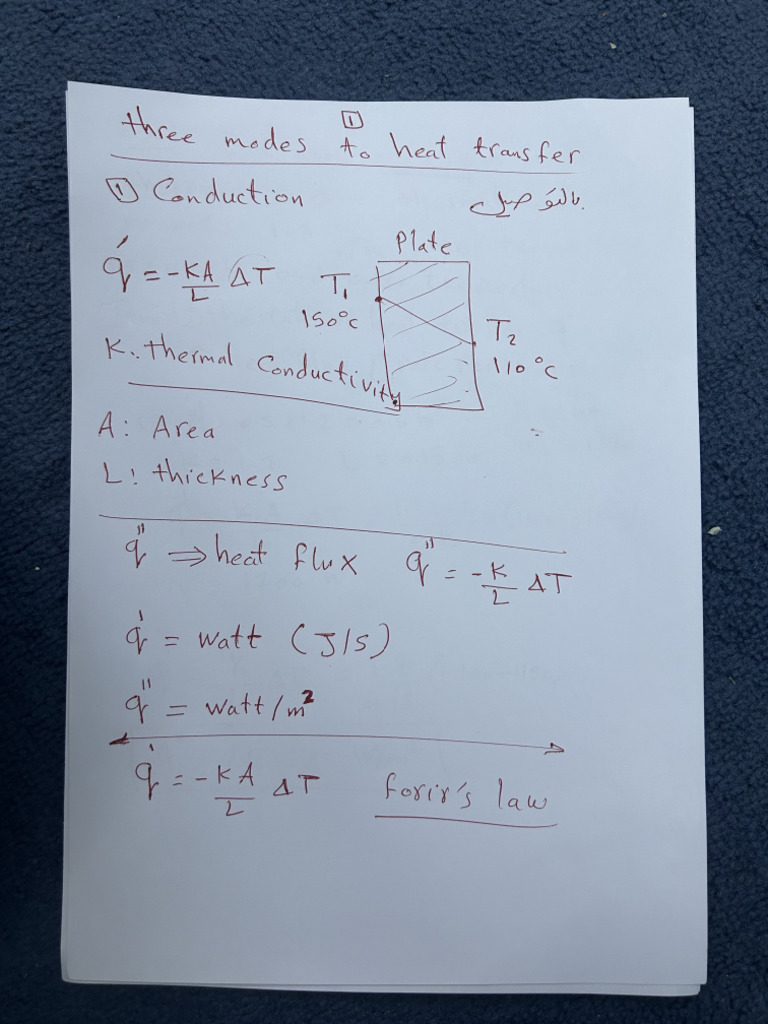 1
three modes to heat transfer
① Conduction بالتوصيل
Plate
q̇ = -KA/L ΔT
T₁
150°c
T₂
110°c
K: thermal Conductivity
A: Area
L: thickness
q̈ ⇒ heat flux q'' = -K/L ΔT
q̇ = watt (J/s)
q'' = watt/m²
q̇ = -KA/L ΔT forir's law